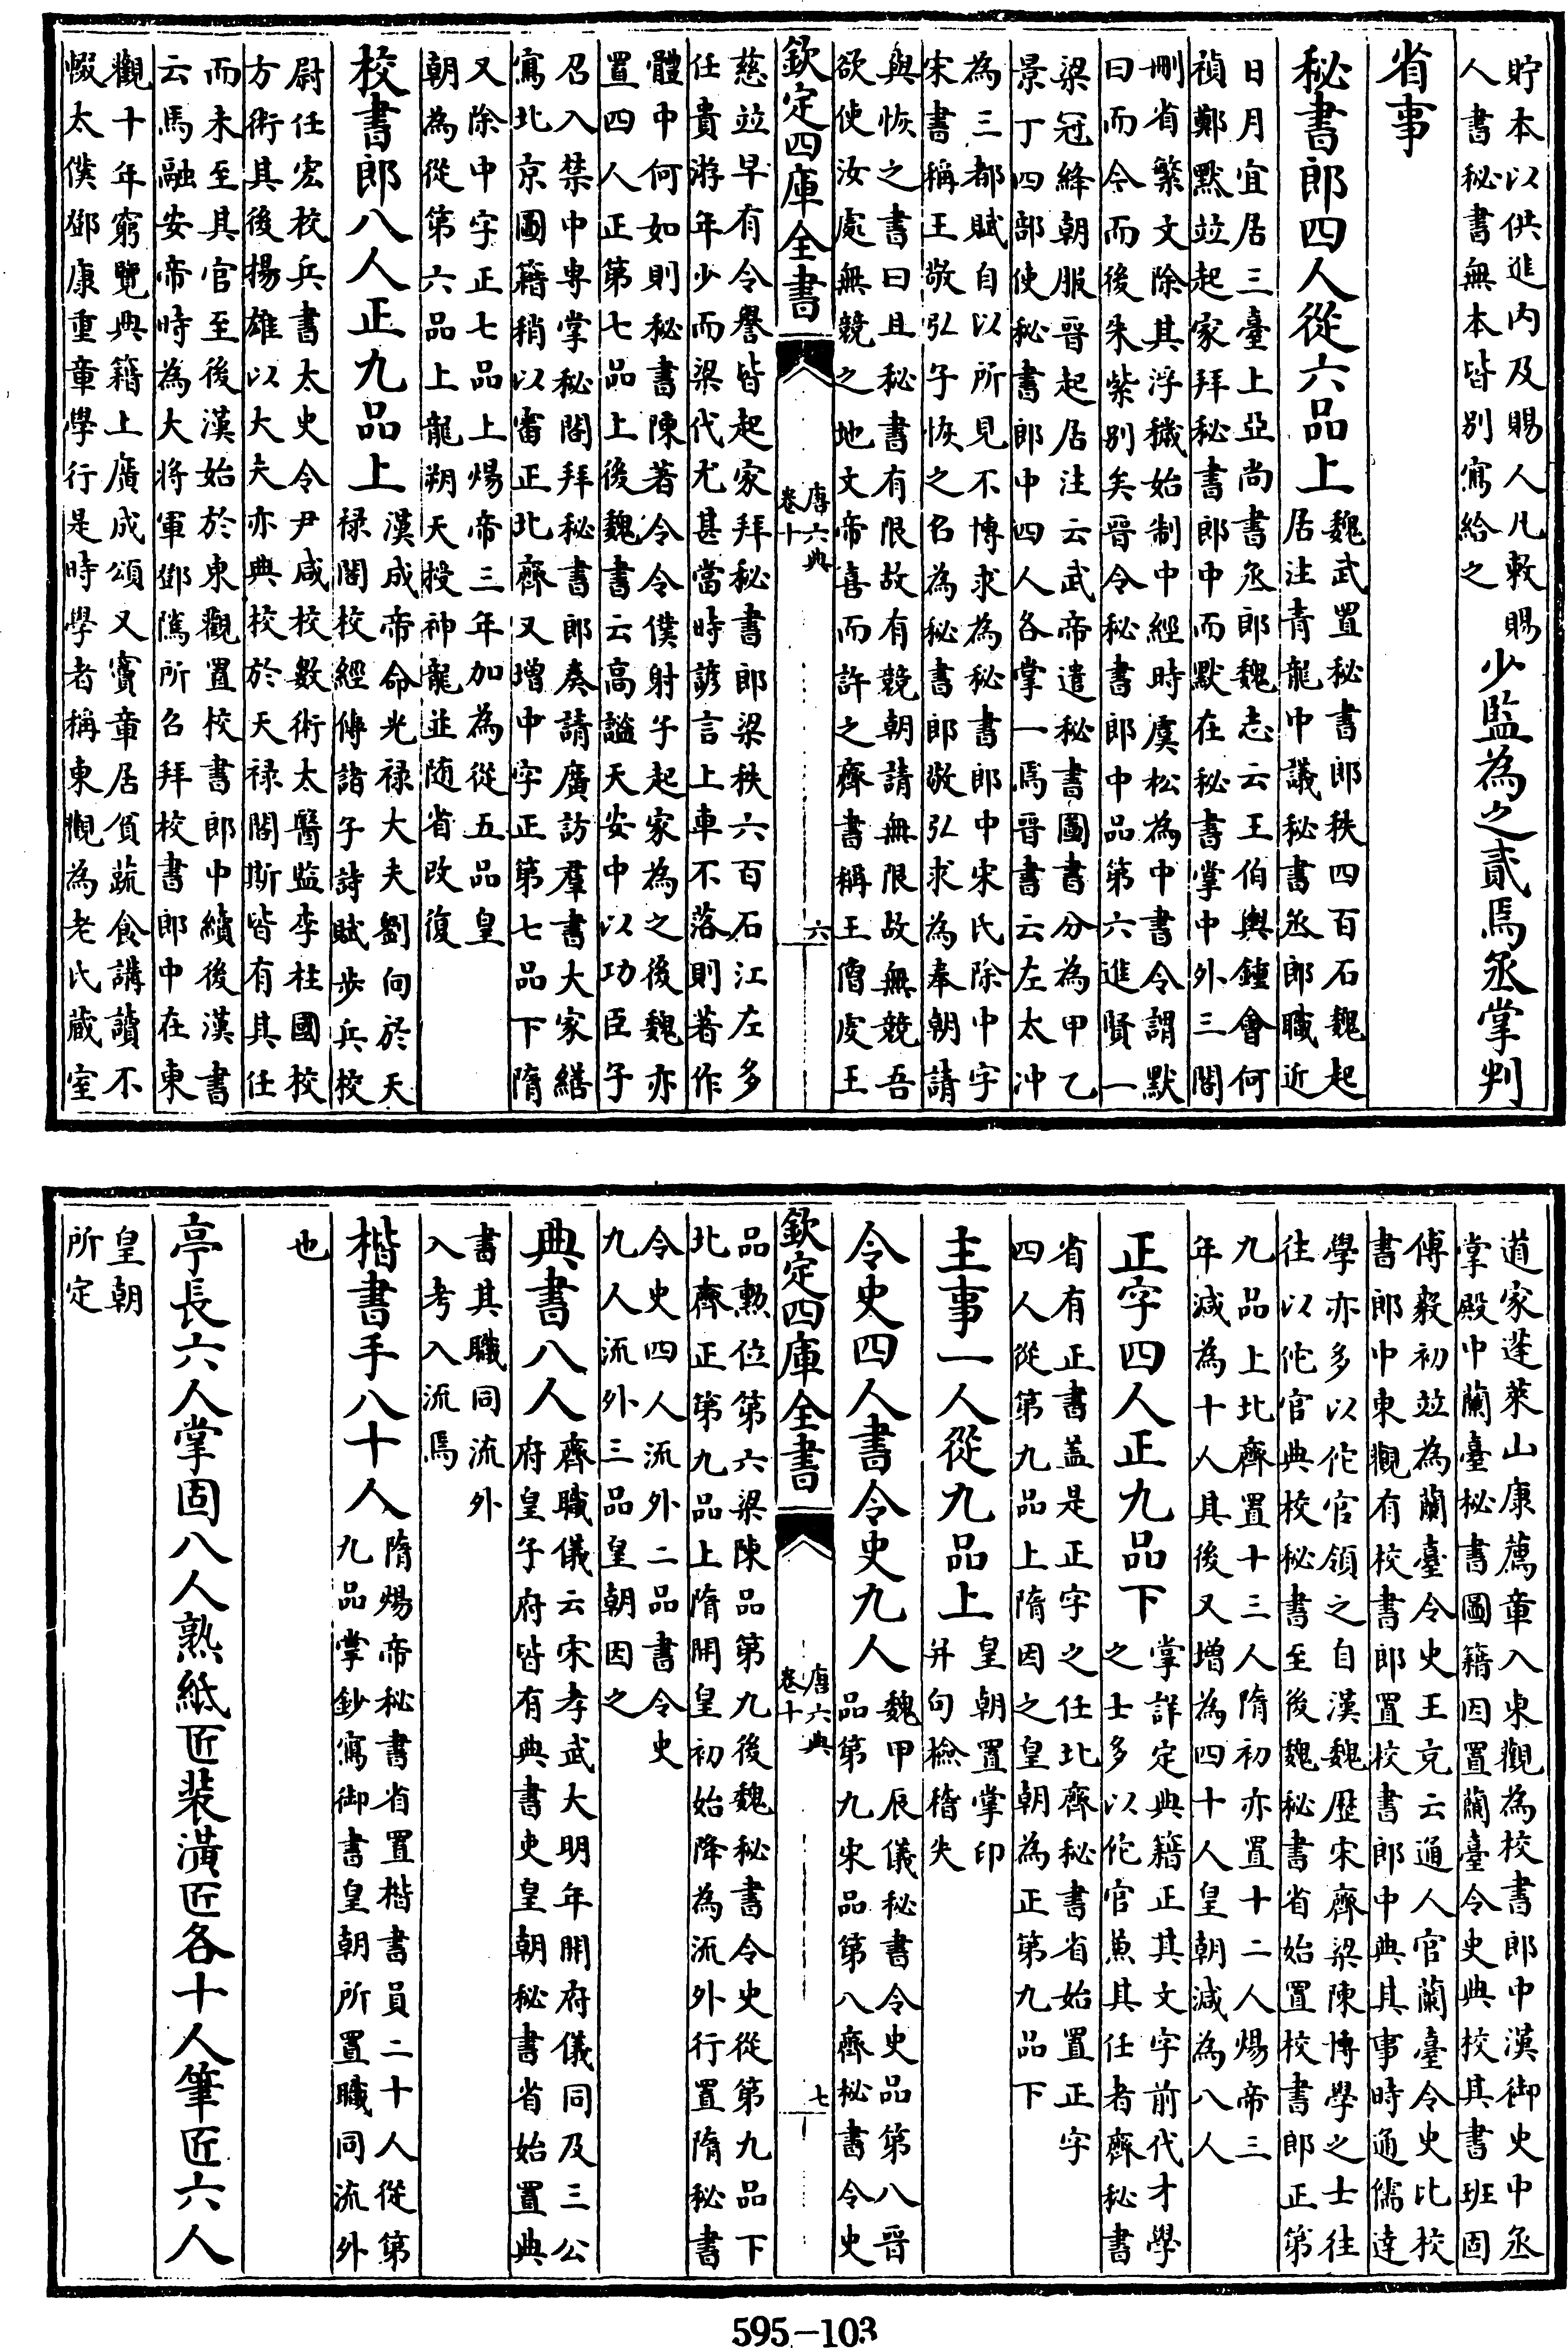 貯本以供進内及賜人凡敕賜
人書秘書無本皆别寫給之
少監為之貳焉丞掌判
省事
秘書郎四人從六品上
魏武置秘書郎秩四百石魏起
居注青龍中議秘書丞郎職近
日月宜居三臺上亞尚書丞郎魏志云王伯輿鍾會何
禎鄭默並起家拜秘書郎中而默在秘書掌中外三閣
刪省繁文除其浮穢始制中經時虞松為中書令謂默
曰而令而後朱紫别矣晉令秘書郎中品第六進賢一
梁冠絳朝服晉起居注云武帝遣秘書圖書分為甲乙
景丁四部使秘書郎中四人各掌一焉晉書云左太冲
為三都賦自以所見不博求為秘書郎中宋氏除中字
宋書稱王敬弘子恢之名為秘書郎敬弘求為奉朝請
與恢之書曰且秘書有限故有競朝請無限故無競吾
欲使汝處無競之地文帝喜而許之齊書稱王僧虔王
欽定四庫全書
唐六典
卷十
六
慈並早有令譽皆起家拜秘書郎梁秩六百石江左多
任貴游年少而梁代尤甚當時諺言上車不落則著作
體中何如則秘書陳著令令僕射子起家為之後魏亦
置四人正第七品上後魏書云高謐天安中以功臣子
召入禁中専掌秘閣拜秘書郎奏請廣訪羣書大家繕
寫北京圖籍稍以審正北齊又增中字正第七品下隋
又除中字正七品上煬帝三年加為從五品皇
朝為從第六品上龍朔天授神龍並随省改復
校書郎八人正九品上
漢成帝命光禄大夫劉向於天
禄閣校經傳諸子詩賦步兵校
尉任宏校兵書太史令尹咸校數術太醫監李柱國校
方術其後揚雄以大夫亦典校於天禄閣斯皆有其任
而未至其官至後漢始於東觀置校書郎中續後漢書
云馬融安帝時為大將軍鄧隲所召拜校書郎中在東
觀十年窮覽典籍上廣成頌又竇章居貧蔬食講讀不
輟太僕鄧康重章學行是時學者稱東觀為老氏蔵室
道家蓬萊山康薦章入東觀為校書郎中漢御史中丞
掌殿中蘭臺秘書圖籍因置蘭臺令史典校其書班固
傅毅初並為蘭臺令史王充云通人官蘭臺令史比校
書郎中東觀有校書郎置校書郎中典其事時通儒達
學亦多以佗官領之自漢魏歴宋齊梁陳博學之士往
往以佗官典校秘書至後魏秘書省始置校書郎正第
九品上北齊置十三人隋初亦置十二人煬帝三
年減為十人其後又增為四十人皇朝減為八人
正字四人正九品下
掌詳定典籍正其文字前代才學
之士多以佗官兼其任者齊秘書
省有正書葢是正字之任北齊秘書省始置正字
四人從第九品上隋因之皇朝為正第九品下
主事一人從九品上
皇朝置掌印
并句檢稽失
令史四人書令史九人
魏甲辰儀秘書令史品第八晉
品第九宋品第八齊秘書令史
欽定四庫全書
唐六典
卷十
七
品勲位第六梁陳品第九後魏秘書令史從第九品下
北齊正第九品上隋開皇初始降為流外行置隋秘書
令史四人流外二品書令史
九人流外三品皇朝因之
典書八人
齊職儀云宋孝武大明年開府儀同及三公
府皇子府皆有典書吏皇朝秘書省始置典
書其職同流外
入考入流焉
楷書手八十人
隋煬帝秘書省置楷書員二十人從第
九品掌鈔寫御書皇朝所置職同流外
也
亭長六人掌固八人熟紙匠装潢匠各十人筆匠六人
皇朝
所定
595-103